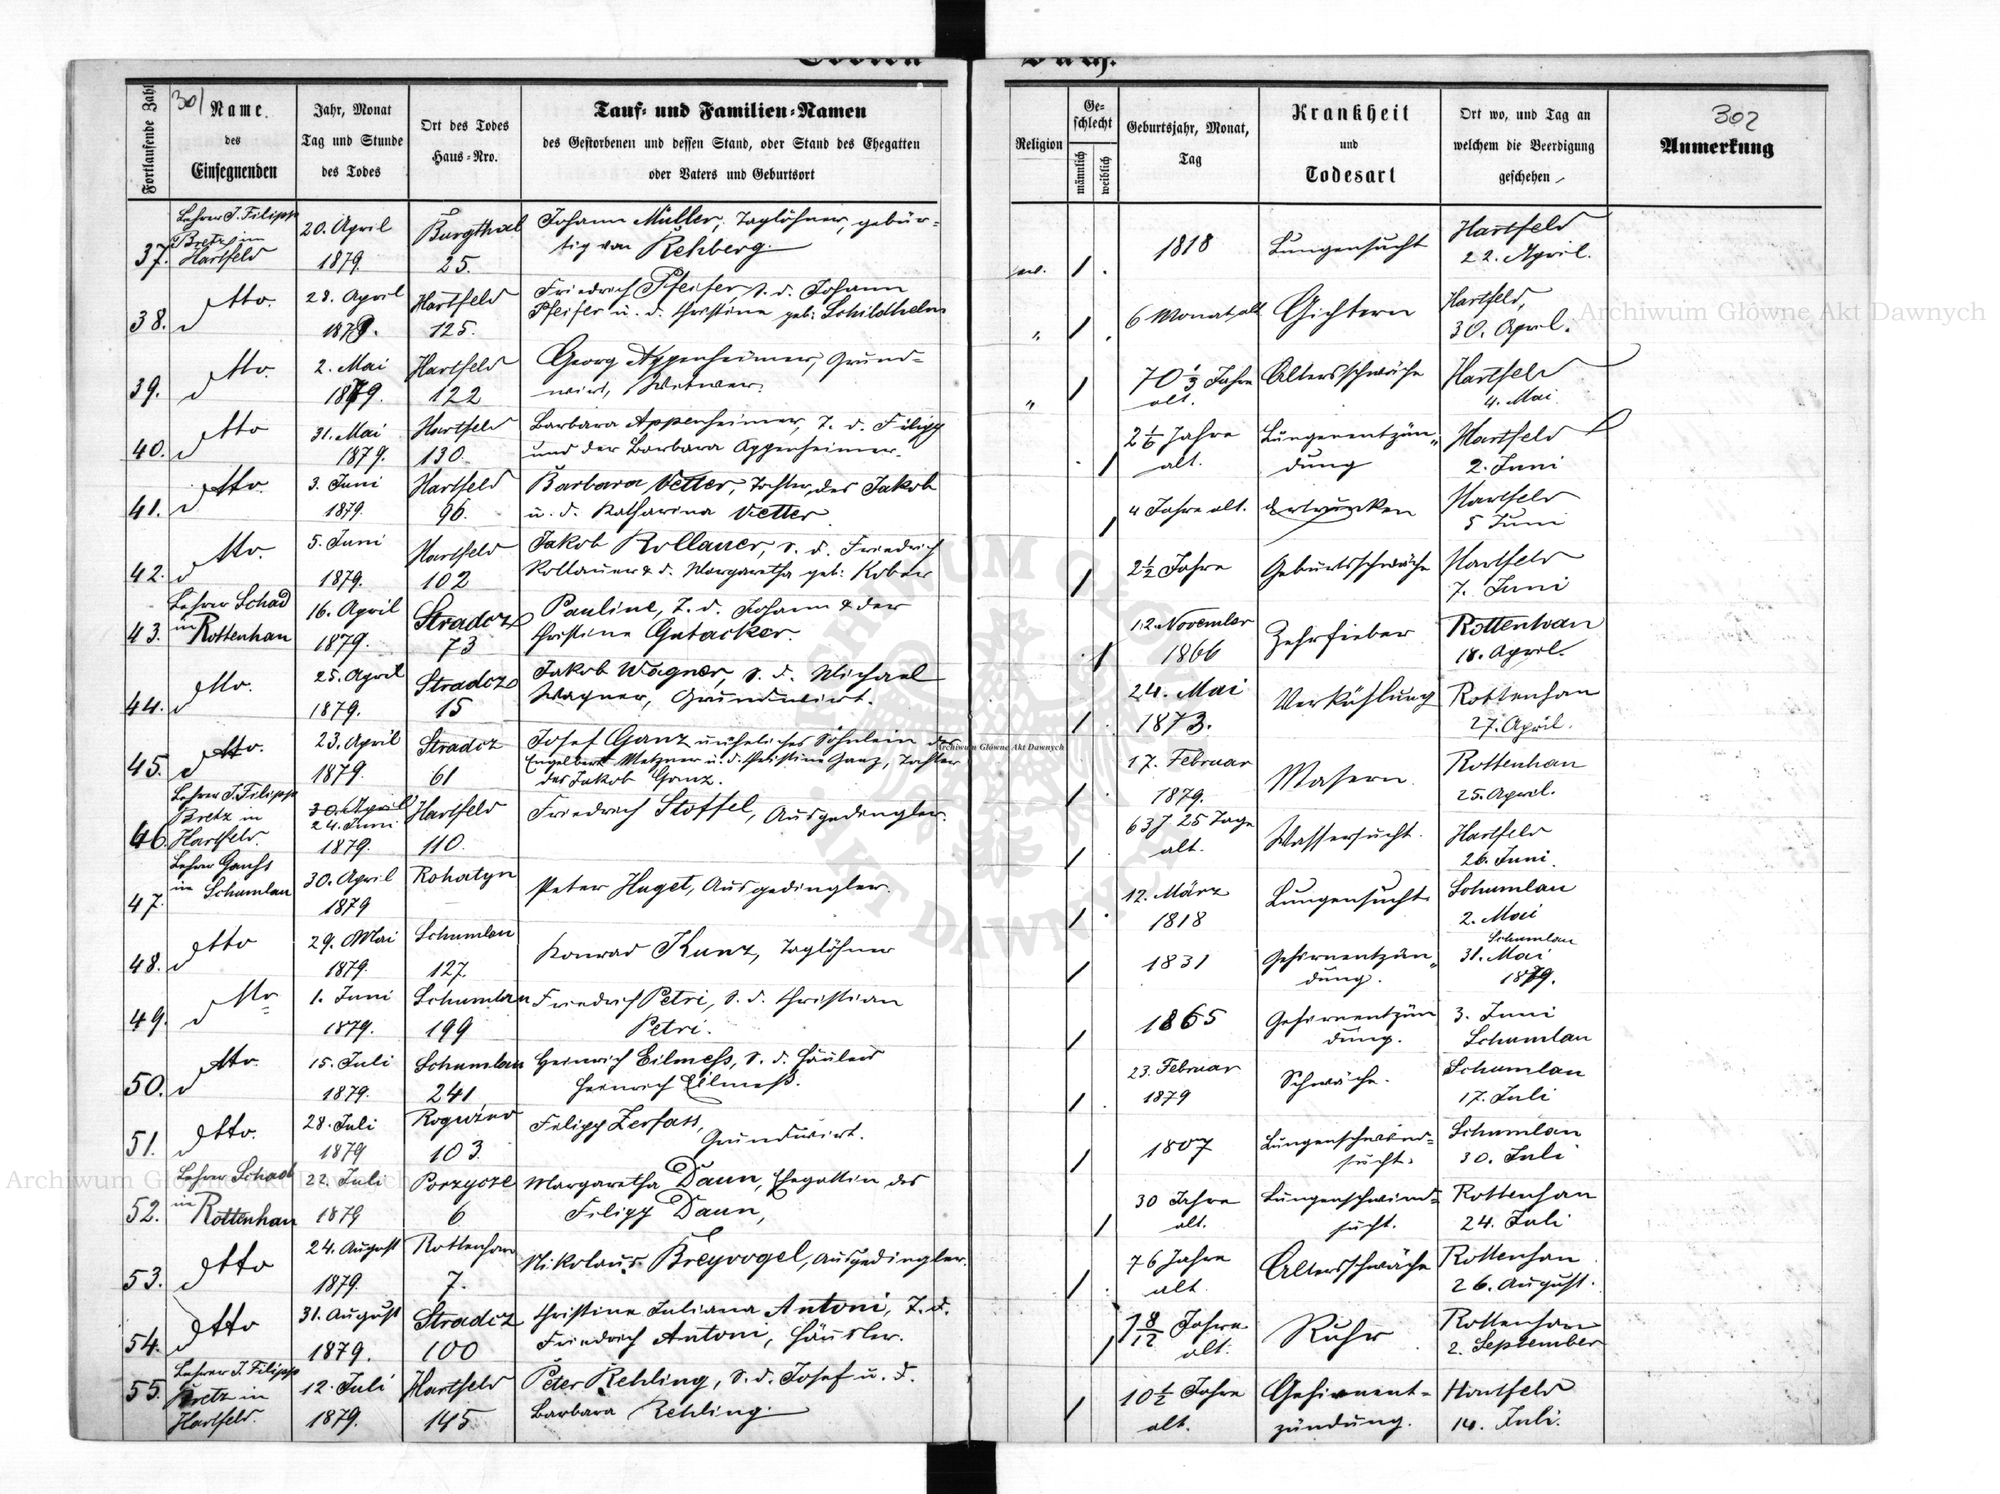 Todten
Buch.
301
302
Fortlaufende Zahl
Name
des
Einsegnenden
Jahr, Monat
Tag und Stunde
des Todes
Ort des Todes
Haus-Nro.
Tauf- und Familien-Namen
des Gestorbenen und dessen Stand, oder Stand des Ehegatten
oder Vaters und Geburtsort
Religion
Ge-
schlecht
männlich
weiblich
Geburtsjahr, Monat,
Tag
Krankheit
und
Todesart
Ort wo, und Tag an
welchem die Beerdigung
geschehen
Anmerkung
37. Lehrer J. Filipp Bretz in Hartfeld
20. April 1879.
Burgthal 25.
Johann Müller, Taglöhner, gebür-
tig von Rehberg.
1818
Lungensucht
Hartfeld
22. April.
38. dtto.
28. April 1879.
Hartfeld 125.
Friedrich Pfeifer, S. d. Johann
Pfeifer u. d. Christine geb. Schildhelm
6 Monat alt
Gichtern
Hartfeld,
30. April.
39. dtto.
2. Mai 1879.
Hartfeld 122
Georg Appenheimer, Grund-
wirt, Witwer.
70 1/3 Jahre alt.
Altersschwäche
Hartfeld
4. Mai.
40. dtto
31. Mai 1879.
Hartfeld 130.
Barbara Appenheimer, T. d. Filipp
und der Barbara Appenheimer.
2 1/6 Jahre alt.
Lungenentzün-
dung
Hartfeld
2. Juni
41. dtto.
3. Juni 1879.
Hartfeld 96.
Barbara Vetter, Tochter des Jakob
u. d. Katharina Vetter
4 Jahre alt.
ertrunken
Hartfeld
5 Juni
42. dtto.
5. Juni 1879.
Hartfeld 102
Jakob Kollauer, S. d. Friedrich
Kollauer & d. Margaretha geb. Kober
2 1/2 Jahre
Geburtsschwäche
Hartfeld
7. Juni
43. Lehrer Schad in Rottenhan
16. April 1879.
Stradcz 73
Pauline, T. d. Johann & der
Christine Gutacker.
12. November 1866
Zehrfieber
Rottenhan
18. April.
44. dtto.
25. April 1879.
Stradcz 15
Jakob Wagner, S. d. Michael
Wagner, Grundwirt.
24. Mai 1873.
Verkühlung
Rottenhan
27. April.
45. dtto.
23. April 1879.
Stradcz 61
Josef Ganz uneheliches Söhnlein des
Engelbert Metzner u. d. Christine Ganz, Tochter
des Jakob Ganz.
17. Februar 1879.
Masern.
Rottenhan
25. April.
46. Lehrer J. Filipp Bretz in Hartfeld.
30. April
24. Juni 1879.
Hartfeld 110.
Friedrich Stoffel, Ausgedingler.
63 J 25 Tage alt.
Wassersucht.
Hartfeld
26. Juni.
47. Lehrer in Schumlau
30. April 1879
Rohatyn
Peter Huget, Ausgedingler.
12. März 1818
Lungensucht.
Schumlau
2. Mai
48. dtto
29. Mai 1879.
Schumlau 127.
Konrad Kunz, Taglöhner
1831
Gehirnentzün-
dung.
Schumlau
31. Mai
1879.
49. dtto
1. Juni 1879.
Schumlau 199
Friedrich Petri, S. d. Christian
Petri.
1865
Gehirnentzün
dung.
3. Juni
Schumlau
50. dtto.
15. Juli 1879.
Schumlau 241
Heinrich Eilmeß, S. d. Häuslers
Heinrich Eilmeß.
23. Februar 1879
Schwäche.
Schumlau
17. Juli
51. dtto.
28. Juli 1879
Roguźno 103.
Filipp Zerfass,
Grundwirt.
1807
Lungenschwind-
sucht.
Schumlau
30. Juli
52. Lehrer Schad in Rottenhan
22. Juli 1879
Porzycze 6
Margaretha Daum, Ehegattin des
Filipp Daum,
30 Jahre alt.
Lungenschwind-
sucht.
Rottenhan
24. Juli
53. dtto
24. August 1879.
Rottenhan 7.
Nikolaus Breyvogel, Ausgedingler.
76 Jahre alt
Altersschwäche
Rottenhan
26. August.
54. dtto
31. August 1879.
Stradcz 100
Christine Juliana Antoni, T. d.
Friedrich Antoni, Häusler.
1 8/12 Jahre alt.
Ruhr
Rottenhan
2. September
55. Lehrer J. Filipp Bretz in Hartfeld.
12. Juli 1879.
Hartfeld 145
Peter Rehling, S. d. Josef u. d.
Barbara Rehling.
10 1/2 Jahre alt.
Gehirnent-
zündung.
Hartfeld
14. Juli.
Archiwum Główne Akt Dawnych
Archiwum Główne Akt Dawnych
Archiwum Główne Akt Dawnych
ARCHIWUM GŁÓWNE
AKT DAWNYCH